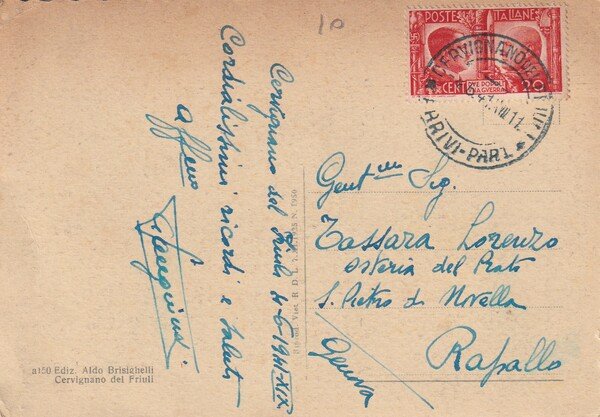 10
POSTE ITALIANE
DUE POPOLI
UNA GUERRA
CENT. 20
CERVIGNANO DEL FRIULI
ARRIVI-PART.
Cervignano del Friuli 4-6-1941-XIX
Cordialissimi ricordi e saluti
Gent.mo Sig.
Tassara Lorenzo
Osteria del Prato
S. Pietro di Novella
Rapallo
Genova
a150 Ediz. Aldo Brisighelli
Cervignano del Friuli